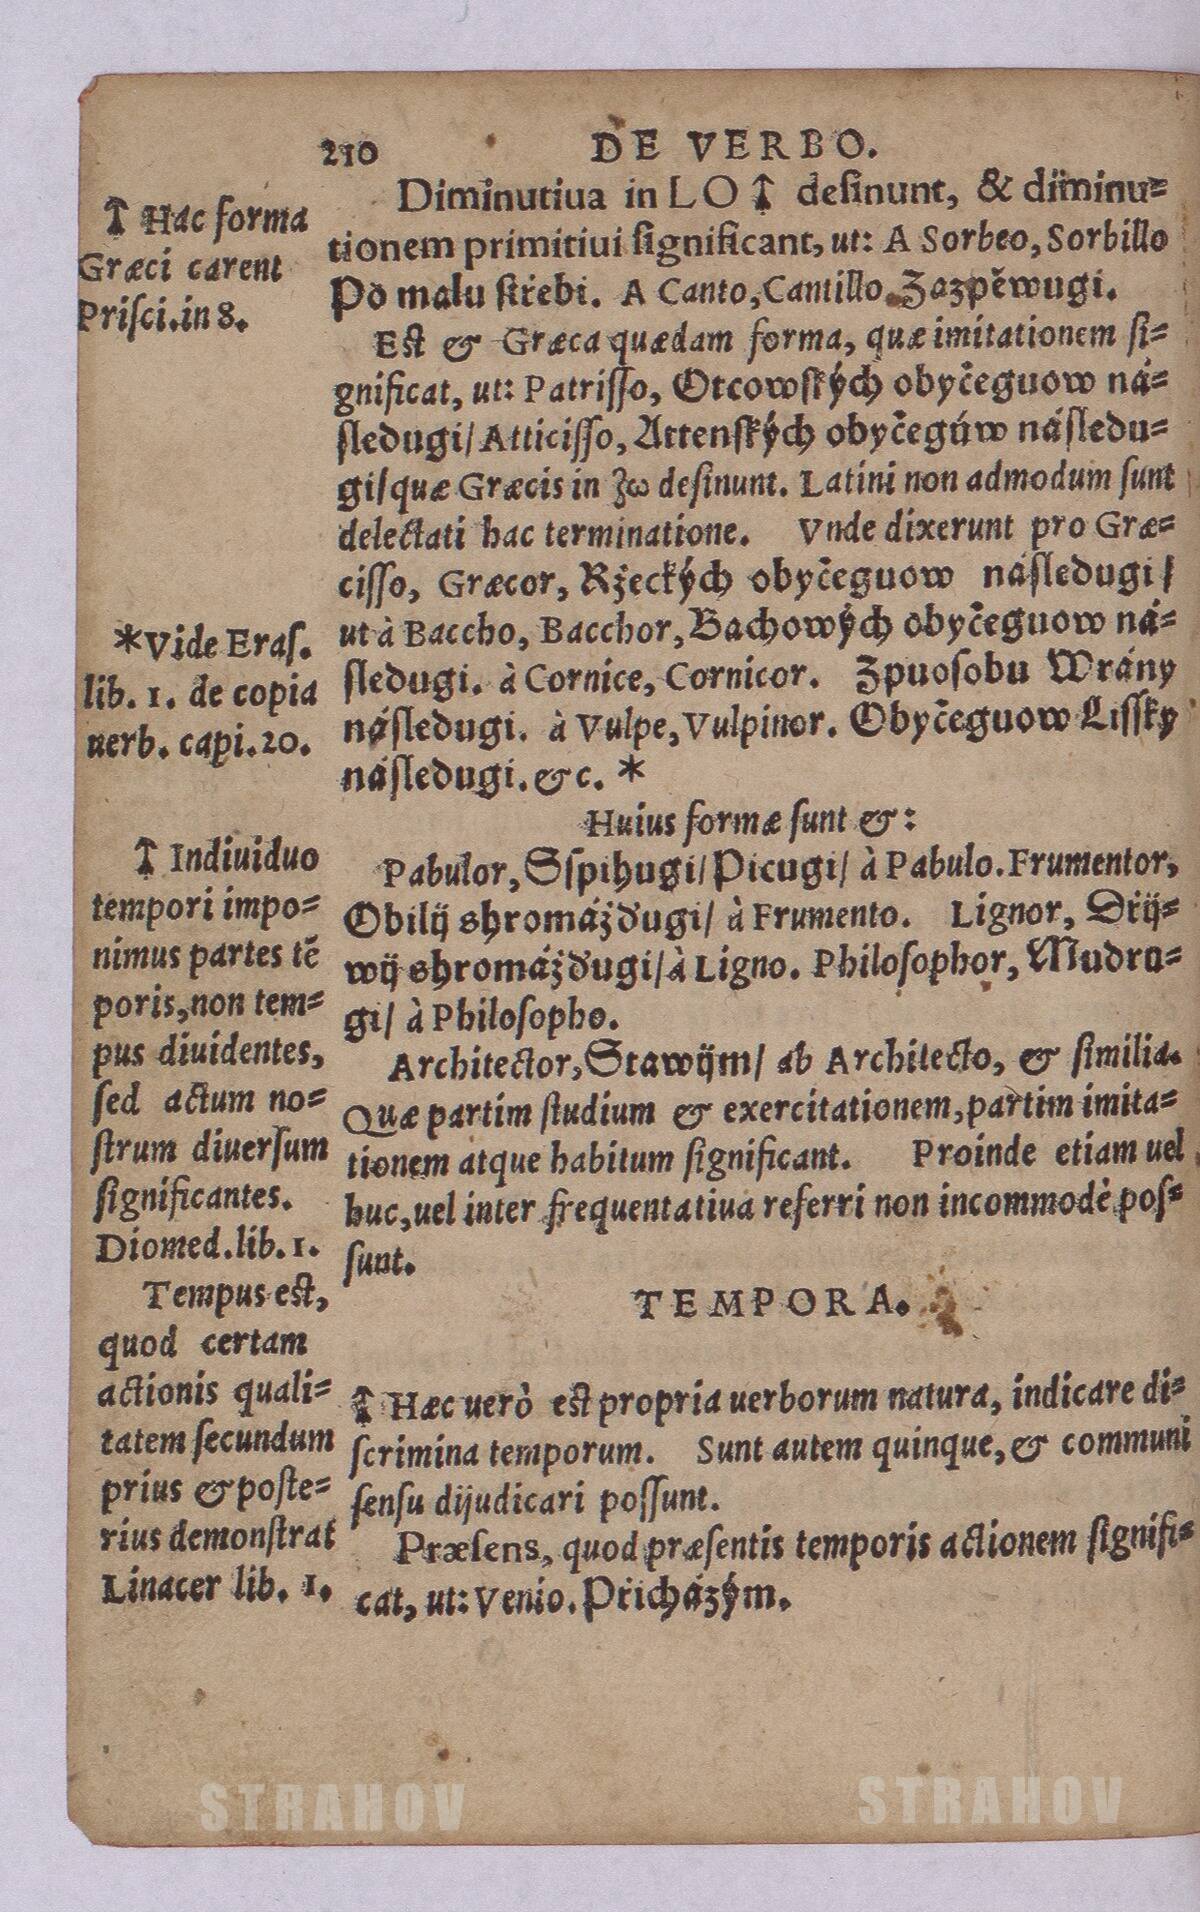 210 DE VERBO.
Diminutiua in LO ↥ desinunt, & diiminu⸗
tionem primitiui significant, ut: A Sorbeo, Sorbillo
Po malu střebi. A Canto, Cantillo Zazpěwugi.
Est & Græca quædam forma, quæ imitationem si⸗
gnificat, ut: Patrisso, Otcowských obyčeguow ná⸗
sledugi/ Atticisso, Attenských obyčegúw následu⸗
gi/ quæ Græcis in ζω desinunt. Latini non admodum sunt
delectati hac terminatione. Vnde dixerunt pro Græ⸗
cisso, Græcor, Rżeckých obyčeguow následugi/
ut à Baccho, Bacchor, Bachowých obyčeguow ná⸗
sledugi. à Cornice, Cornicor. Zpuosobu Wrány
následugi. à Vulpe, Vulpinor. Obyčeguow Lissky
následugi. &c. *
Huius formæ sunt &:
Pabulor, Sspihugi/ Picugi/ à Pabulo. Frumentor,
Obilij shromáżďugi/ à Frumento. Lignor, Dřij⸗
wij shromáżďugi/ à Ligno. Philosophor, Mudru⸗
gi/ à Philosopho.
Architector, Stawijm/ ab Architecto, & similia.
Quæ partim studium & exercitationem, partim imita⸗
tionem atque habitum significant. Proinde etiam uel
huc, uel inter frequentatiua referri non incommodè pos⸗
sunt.
TEMPORA.
↥ Hæc uerò est propria uerborum natura, indicare di⸗
scrimina temporum. Sunt autem quinque, & communi
sensu dijudicari possunt.
Præsens, quod præsentis temporis actionem signifi⸗
cat, ut: Venio. Přicházým.
↥ Hac forma
Græci carent
Prisci. in 8.
*Vide Eras.
lib. 1. de copia
uerb. capi. 20.
↥ Indiuiduo
tempori impo⸗
nimus partes tē
poris, non tem⸗
pus diuidentes,
sed actum no⸗
strum diuersum
significantes.
Diomed. lib. 1.
Tempus est,
quod certam
actionis quali⸗
tatem secundum
prius & poste⸗
rius demonstrat
Linacer lib. 1.
STRAHOV STRAHOV